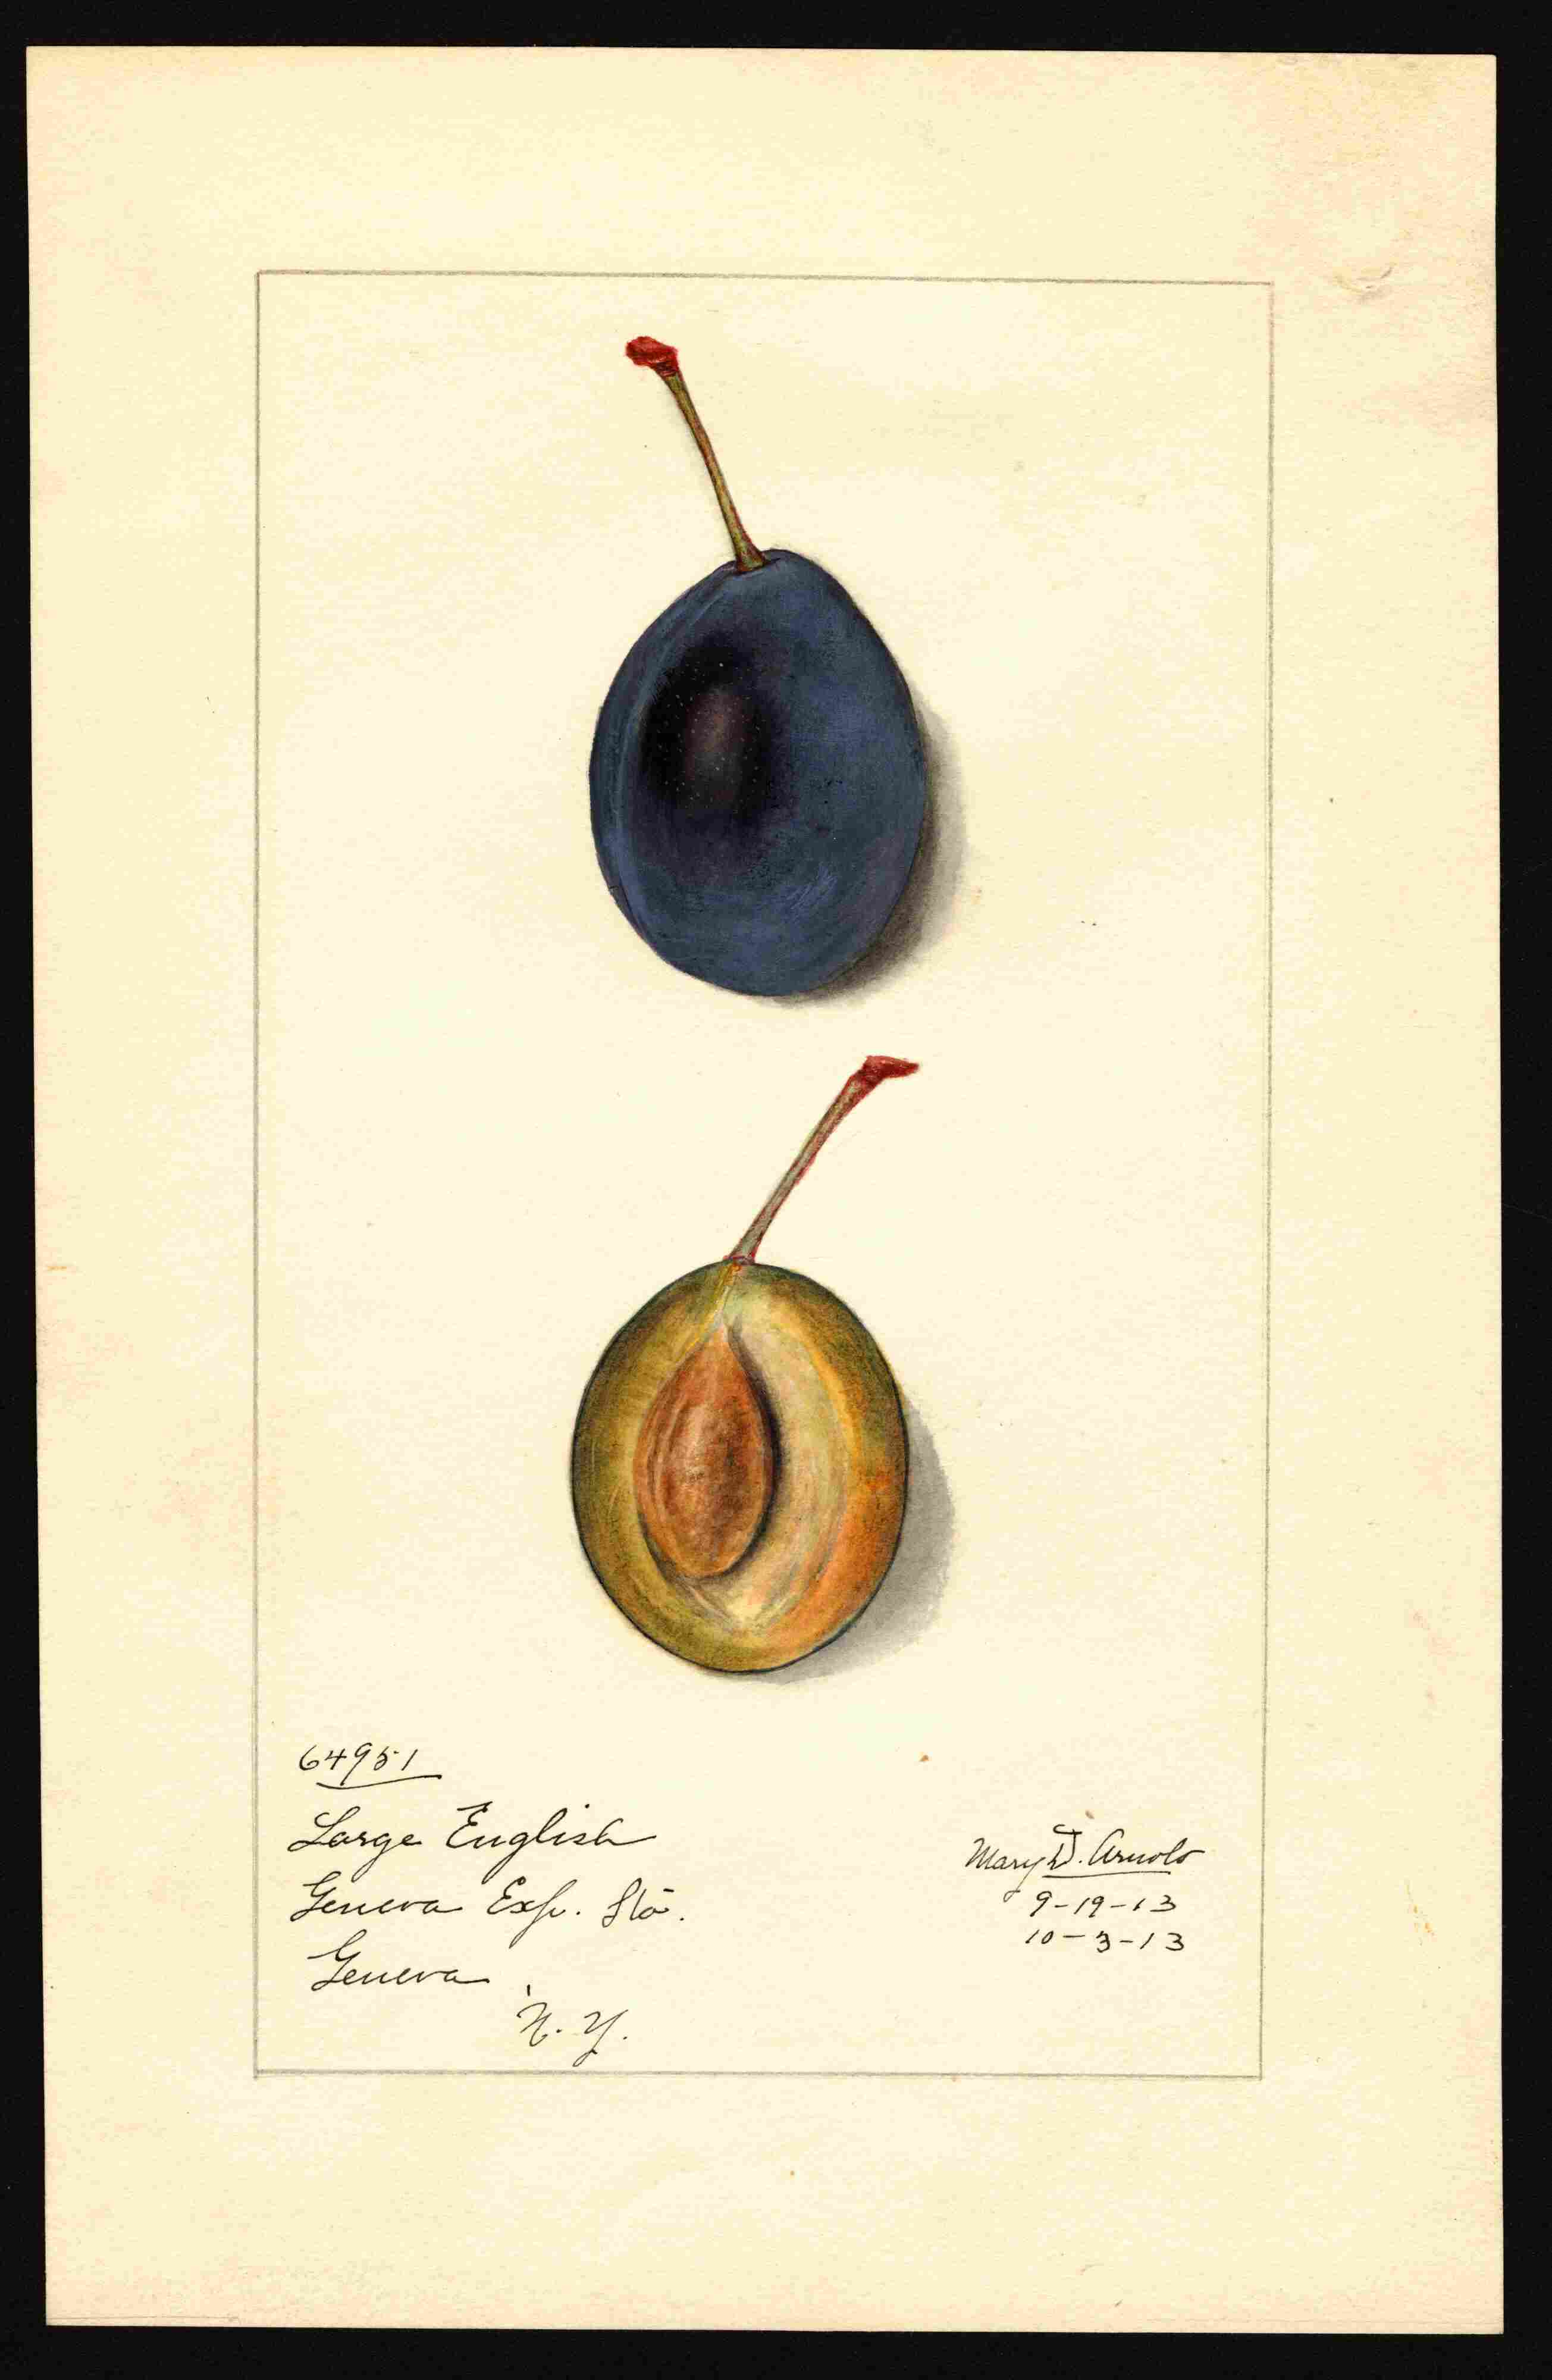 64951
Large English
Geneva Exp. Sta.
Geneva
N. Y.
Mary D. Arnold
9-19-13
10-3-13